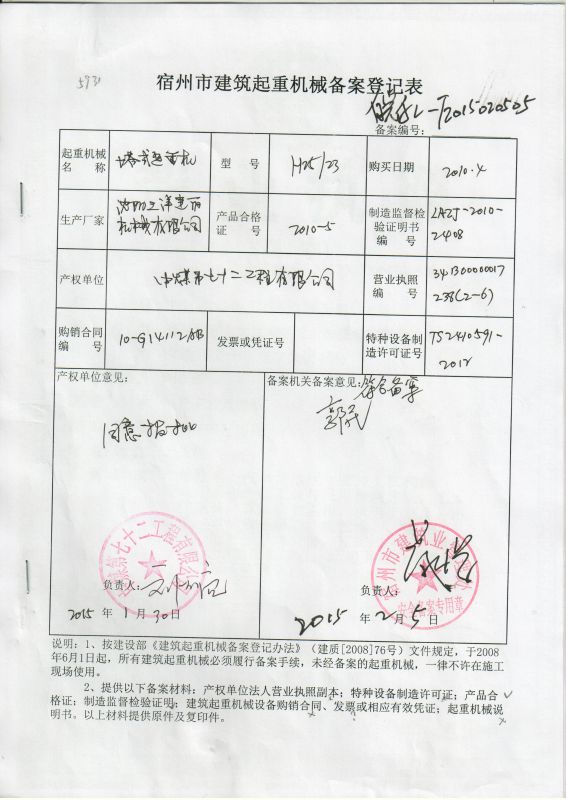 5931
宿州市建筑起重机械备案登记表
T2015020505
备案编号：
起重机械
名 称
塔式起重机
型 号
H25/23
购买日期
2010.4
生产厂家
机械有限公司
产品合格
证 号
2010-5
制造监督检
验证明书
编 号
LAZJ-2010-
2408
产权单位
中煤第七十二工程有限公司
营业执照
编 号
341300000017
238(2-6)
购销合同
编 号
10-G14112AB
发票或凭证号
特种设备制
造许可证号
TS2410591-
2012
产权单位意见：
备案机关备案意见：
符合备案
同意
第七十二工程有限公
宿州市建筑业
安全备案专用章
负责人：
负责人：
2015 年 1 月 30 日
2015 年 2 月 5 日
说明：1、按建设部《建筑起重机械备案登记办法》（建质[2008]76号）文件规定，于2008
年6月1日起，所有建筑起重机械必须履行备案手续，未经备案的起重机械，一律不许在施工
现场使用。
2、提供以下备案材料：产权单位法人营业执照副本；特种设备制造许可证；产品合
格证；制造监督检验证明；建筑起重机械设备购销合同、发票或相应有效凭证；起重机械说
明书。以上材料提供原件及复印件。